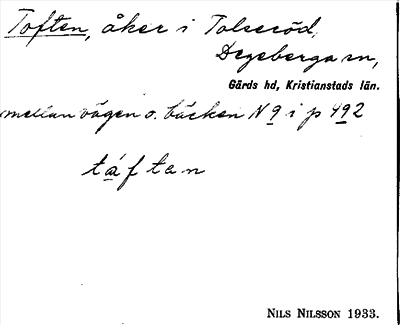 Toften, åker i Tolseröd,
Degeberga sn,
Gärds hd, Kristianstads län.
mellan vägen o. bäcken N 9 i p 492
táften
NILS NILSSON 1933.